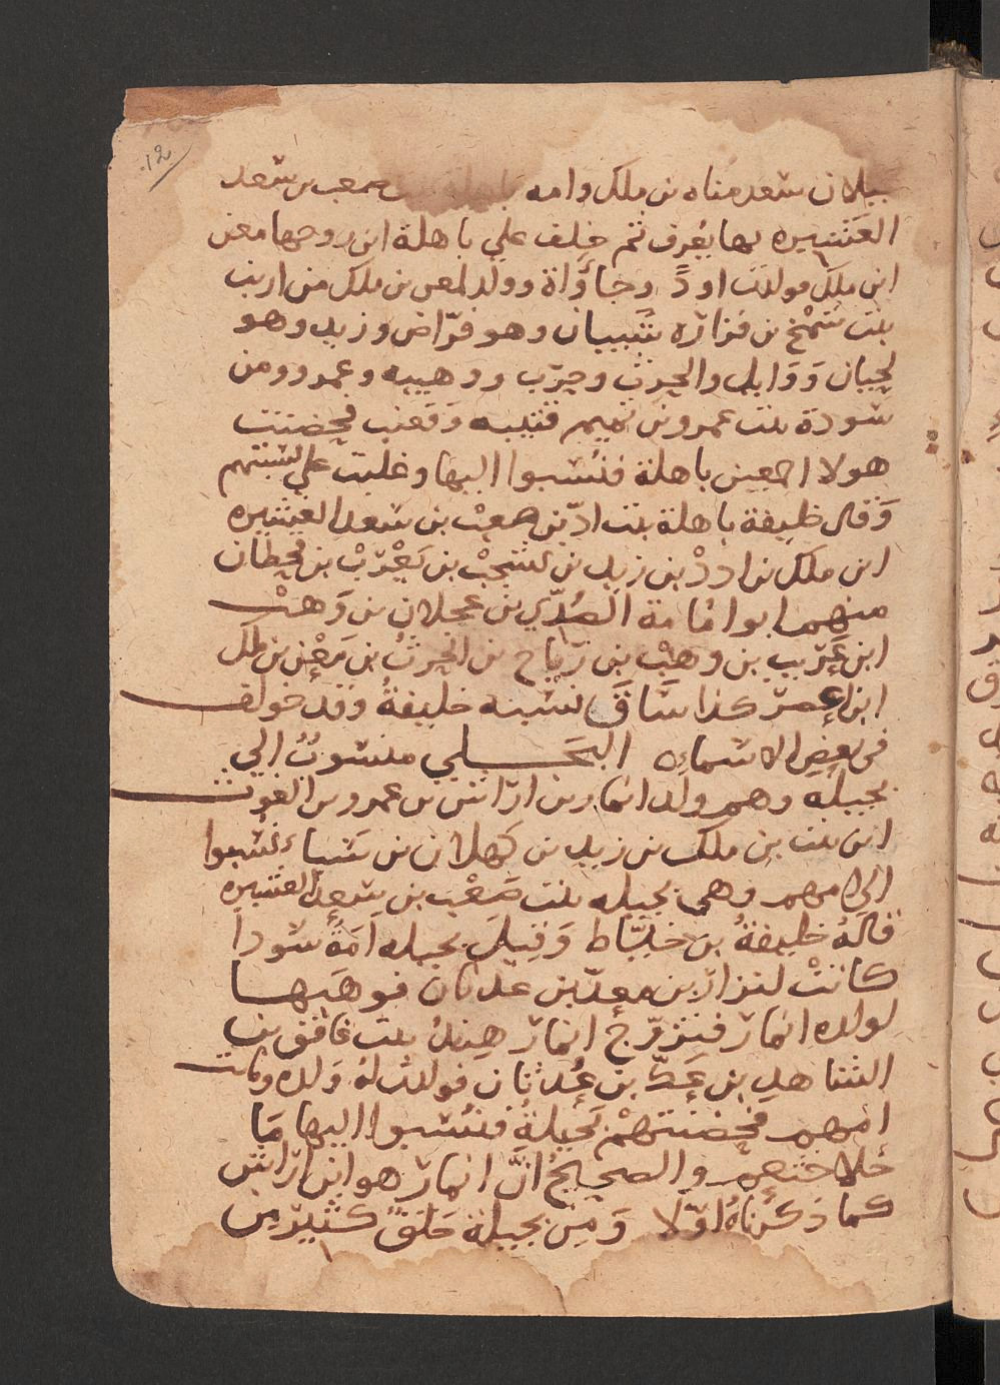 ١٢
عيلان سعد مناه بن ملك وامه باهلة بنت صعب بن سعد
العَشيره بها يُعرف ثم خلف علي باهلة ابن زوجها معن
ابن ملك فولدت اودً وجَاؤاة وولد لمعن بن ملك من ارنب
بنت شمْخ بن فزاره شَيبان وهو فرّاض وزيد وهو
لحيان وَوَايل والحرث وحرب ووهيبه وعمرو ومن
سَودة بنت عمرو بن تميم قتيبه وَقعنب فحضنت
هولا اجمعين باهلة فنُسبوا اليها وغلبت علي نسبتهم
وَقال خليفة باهلة بنت ادّ بن صعب بن سعد العشيره
ابن ملك بن اددْ بن زيد بن يشجبْ بن يَعْرُبْ بن قحطان
منهم ابو امَامة الصُدَي بن عجلان بن وَهبْ
ابن عَريب بن وهبْ بن رياح بن الحرثُ بن مَعْن بن ملك
ابن اعصر كذا سَاقَ نسَبه خليفةُ وَقد خولف
في بعض الاسماءِ البَجَلي منسوبٌ الي
بجيله وهم ولد انمار بن ارَاش بن عمرو بن الغوث
ابن نبت بن ملك بن زيد بن كهلان بن سَباء نُسبوا
الي امهم وهي بجيله بنت صَعْب بن سَعد العشيره
قالهُ خليفةُ بن خيّاط وَقيلَ بجيله اَمَةٌ سَودا
كانتْ لنزار بن معدّ بن عدنان فوهَبها
لولده انمار فتزوّج انمار هِندُ بنت غافق بن
الشاهد بن عَكّ بن عُدثان فولدت لهُ وَلده وَماتت
امّهم فحضنتهُمْ بَجيلةُ فنُسبوا اليها مَا
خلا خثعم والصحيحُ انَّ انمار هو ابن ارَاش
كما ذكرناهُ اوّلا وَمِن بجيلة خَلقٌ كثيرٌ مِن